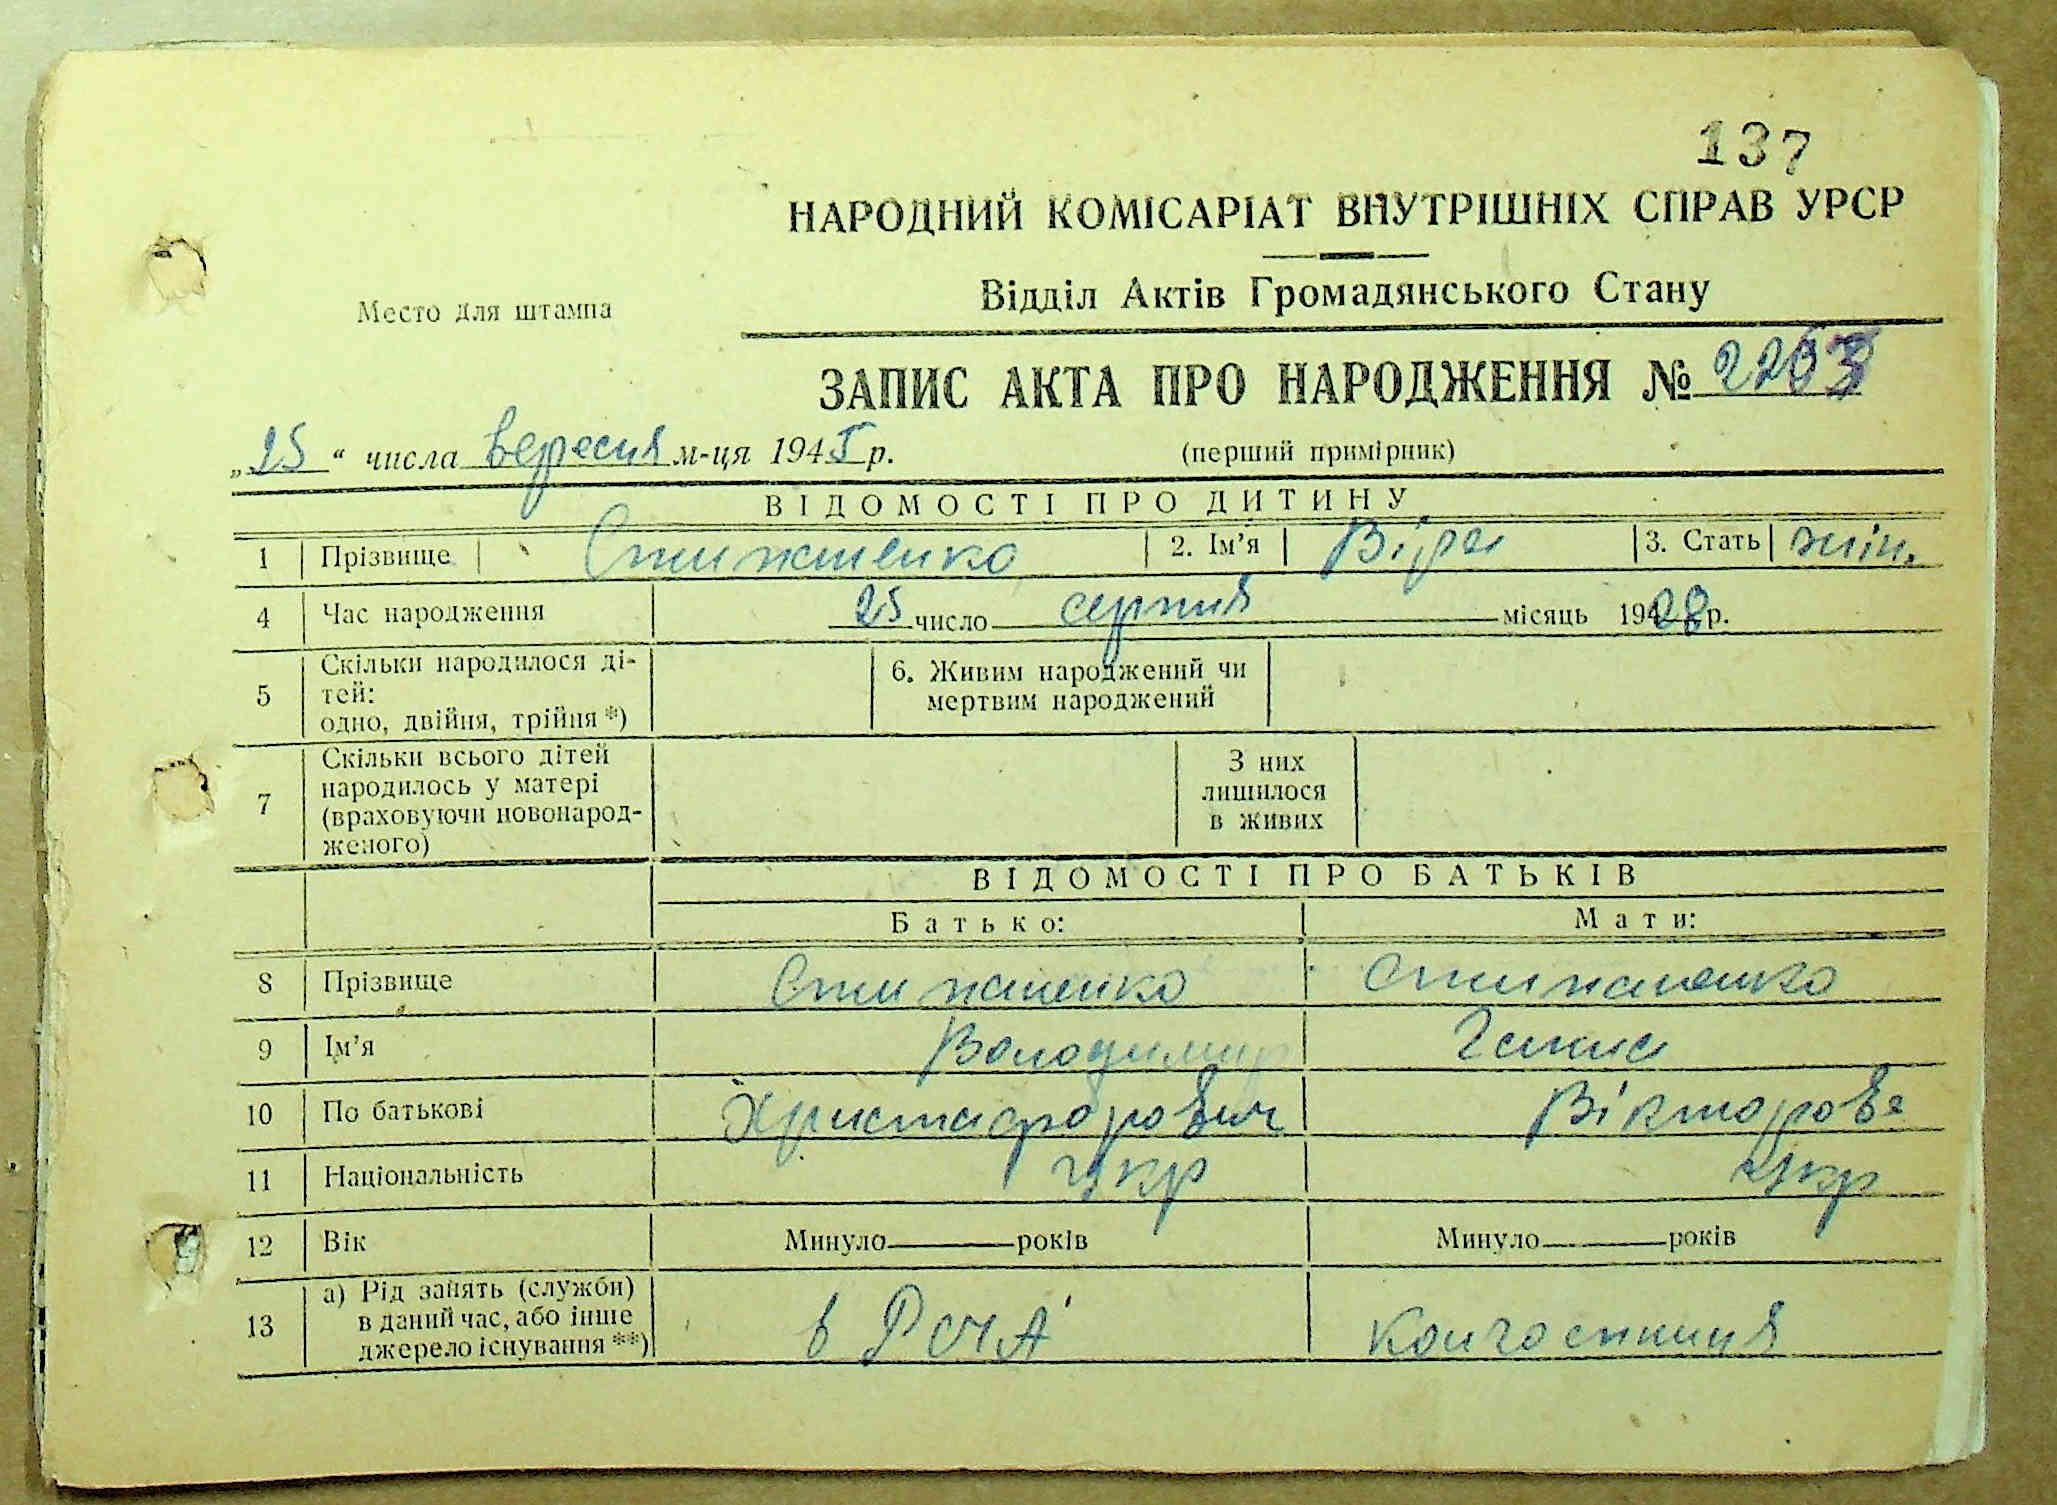 137
НАРОДНИЙ КОМІСАРІАТ ВНУТРІШНІХ СПРАВ УРСР
Відділ Актів Громадянського Стану
Место для штампа
ЗАПИС АКТА ПРО НАРОДЖЕННЯ №
„25“ числа вересня м-ця 1945 р. (перший примірник)
ВІДОМОСТІ ПРО ДИТИНУ
1 Прізвище 2. Ім’я Віра 3. Стать жін.
4 Час народження 25 число серпня місяць 1928 р.
5 Скільки народилося ді-
тей:
одно, двійня, трійня *)
6. Живим народжений чи
мертвим народжений
7 Скільки всього дітей
народилось у матері
(враховуючи новонарод-
женого)
З них
лишилося
в живих
ВІДОМОСТІ ПРО БАТЬКІВ
Батько: Мати:
8 Прізвище
9 Ім’я Володимир
10 По батькові Христафорович Вікторовә
11 Національність укр укр
12 Вік Минуло років Минуло років
13 а) Рід занять (служби)
в даний час, або інше
джерело існування **)
в РСЧА Колгоспниця